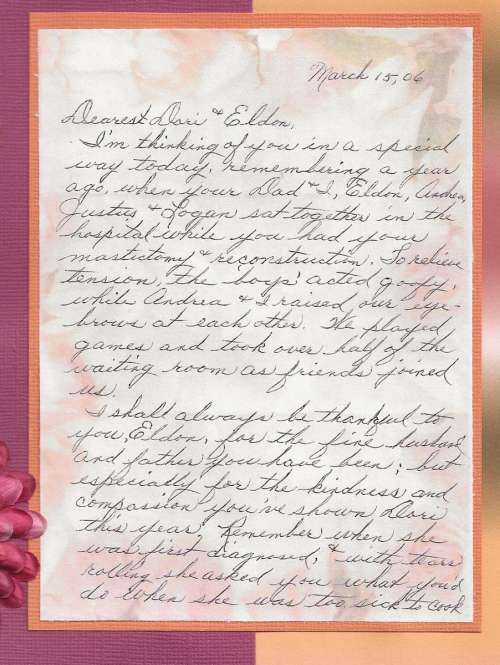 March 15, 06
Dearest Dori & Eldon,
I'm thinking of you in a special
way today, remembering a year
ago, when your Dad & I, Eldon, Andrea,
Justus & Logan sat together in the
hospital while you had your
mastictomy & reconstruction. To relieve
tension, the boys' acted goofy,
while Andrea & I raised our eye-
brows at each other. We played
games and took over half of the
waiting room as friends joined
us.
I shall always be thankful to
you, Eldon, for the fine husband
and father you have been; but
especially for the kindness and
compassion you've shown Dori
this year. Remember when she
was first diagnosed, & with tears
rolling she asked you what you'd
do when she was too sick to cook